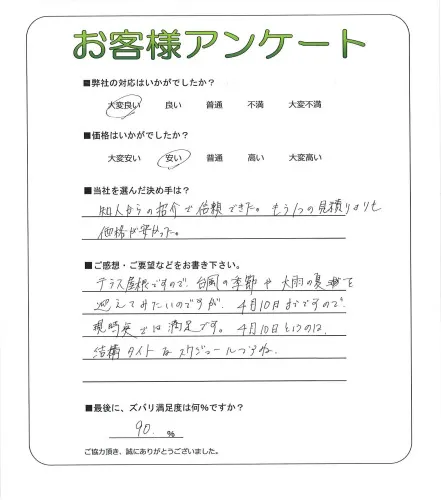 お客様アンケート
■弊社の対応はいかがでしたか？
大変良い 良い 普通 不満 大変不満
■価格はいかがでしたか？
大変安い 安い 普通 高い 大変高い
■当社を選んだ決め手は？
知人からの紹介で信頼できた。もう1つの見積りよりも
価格が安かった。
■ご感想・ご要望などをお書き下さい。
テラス屋根ですので、台風の季節や大雨の夏を
迎えてみたいのですが、4月10日までですので、
現時点では満足です。4月10日というのは、
結構タイトなスケジュールですね。
■最後に、ズバリ満足度は何%ですか？
90. %
ご協力頂き、誠にありがとうございました。